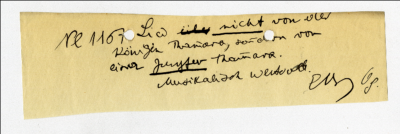 Nr 1167. Lied über nicht von der
Königin Thamara, sondern von
einer Jungfer Thamara.
Musikalisch wertvoll